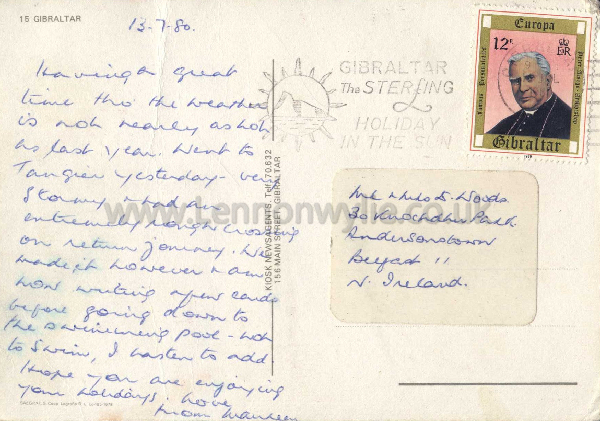 15 GIBRALTAR
13-7-80.
Having a great
time tho' the weather
is not nearly as hot
as last year. Went to
Tangier yesterday - very
stormy & had an
extremely rough crossing
on return journey. We
made it however & am
now writing a few cards
before going down to
the swimming pool - not
to swim, I hasten to add.
Hope you are enjoying
your holidays. Love
from Maureen
KIOSK NEWSAGENTS, Tel: 70.632
156 MAIN STREET, GIBRALTAR
GIBRALTAR
The STERLING
£
HOLIDAY
IN THE SUN
Europa
12P
EIIR
Gibraltar
Mr & Mrs D. Woods
30 Knockdhu Park
Andersonstown
Belfast 11
N. Ireland.
www.Lennonwylie.co.uk